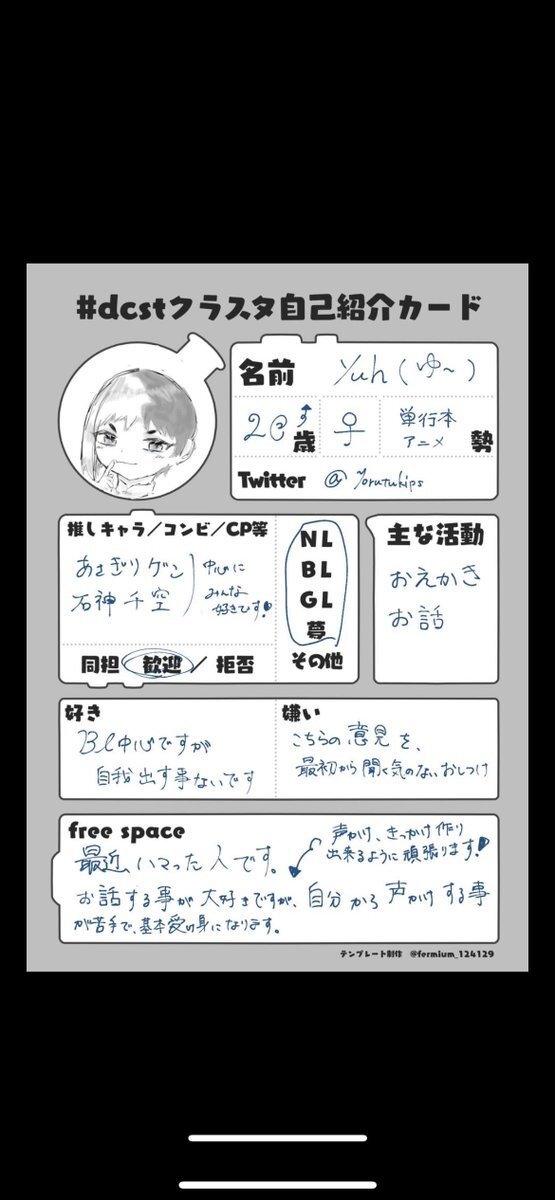 #dcstクラスタ自己紹介カード
名前 Yuh(ゆ〜)
20↑す歳 ♀ 単行本
アニメ 勢
Twitter @Yorutukips
推しキャラ/コンビ/CP等
あさぎりゲン
石神千空
中心に
みんな
好きです!
同担 歓迎 / 拒否
NL
BL
GL
夢
その他
主な活動
おえかき
お話
好き
BL中心ですが
自我出す事ないです
嫌い
こちらの意見を、
最初から聞く気のないおしつけ
free space
最近ハマった人です。
声かけ、きっかけ作り
出来るように頑張ります!
お話する事が大好きですが、自分から声かけする事
が苦手で、基本受け身になります。
テンプレート制作 @fermium_124129